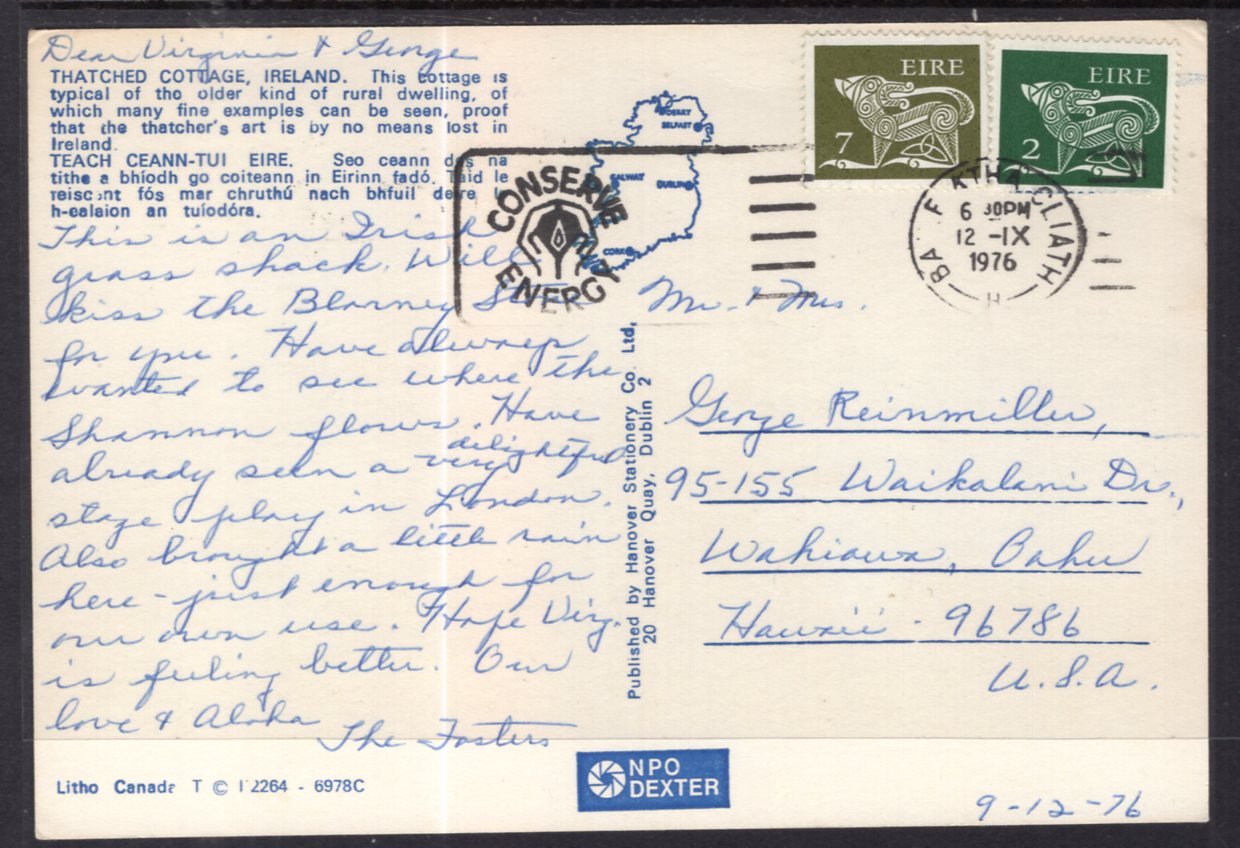 Dear Virginia & George
THATCHED COTTAGE, IRELAND. This cottage is
typical of the older kind of rural dwelling, of
which many fine examples can be seen, proof
that the thatcher's art is by no means lost in
Ireland.
TEACH CEANN-TUI EIRE. Seo ceann des na
tithe a bhíodh go coiteann in Eirinn fadó. Taid le
feiscint fós mar chruthú nach bhfuil deire le
h-ealaion an tuíodóra.
This is an Irish
grass shack. Will
kiss the Blarney
for you. Have always
wanted to see where the
Shannon flows. Have
already seen a very delightful
stage play in London.
Also brought a little rain
here - just enough for
our own use. Hope Virg.
is feeling better. Our
love & Aloha
The Fosters
Litho Canada T © 12264 - 6978C
Published by Hanover Stationery Co. Ltd.
20 Hanover Quay, Dublin 2
NPO
DEXTER
BELFAST
GALWAY
DUBLIN
CORK
CONSERVE
ENERGY
EIRE
7
EIRE
2
BAILE ÁTHA CLIATH
6 30PM
12 -IX
1976
H
Mr. & Mrs.
George Reinmiller,
95-155 Waikalani Dr.,
Wahiawa, Oahu
Hawaii - 96786
U.S.A.
9-12-76